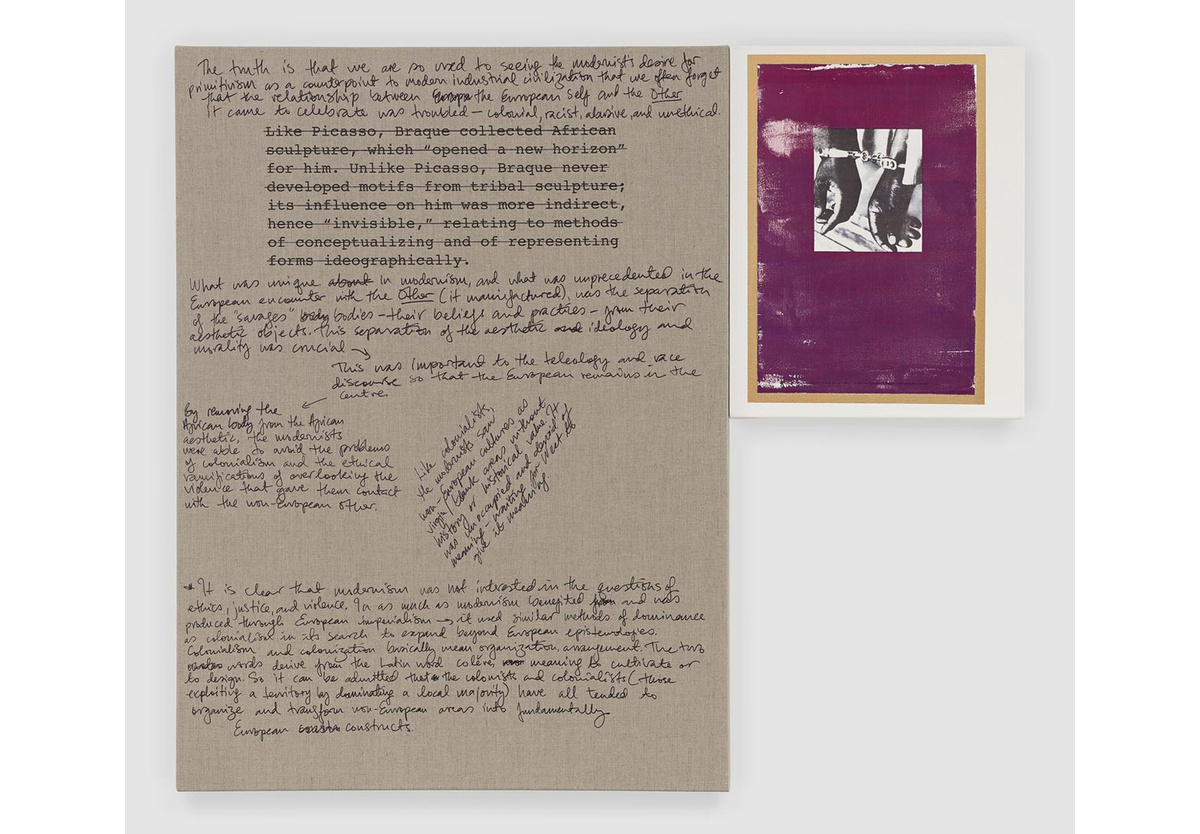 The truth is that we are so used to seeing the modernist's desire for
primitivism as a counterpoint to modern industrial civilization that we often forget
that the relationship between Europe the European self and the Other
it came to celebrate was troubled – colonial, racist, abusive, and unethical.
Like Picasso, Braque collected African
sculpture, which "opened a new horizon"
for him. Unlike Picasso, Braque never
developed motifs from tribal sculpture;
its influence on him was more indirect,
hence "invisible," relating to methods
of conceptualizing and of representing
forms ideographically.
What was unique about in modernism, and what was unprecedented in the
European encounter with the Other (it manufactured), was the separation
of the "savages" body bodies – their beliefs and practices – from their
aesthetic objects. This separation of the aesthetic and ideology and
morality was crucial →
This was important to the teleology and race
discourse so that the European remains in the
centre.
By removing the
African body from the African
aesthetic, the modernists
were able to avoid the problems
of colonialism and the ethical
ramifications of overlooking the
violence that gave them contact
with the non-European other.
Like colonialists,
the modernists saw
non-European cultures as
virgin/blank areas without
history or historical value. It
was unoccupied and devoid of
meaning – waiting for West to
give it meaning.
* It is clear that modernism was not interested in the questions of
ethics, justice, and violence. In as much as modernism benefited from and was
produced through European imperialism → it used similar methods of dominance
as colonialism in its search to expand beyond European epistemologies.
Colonialism and colonization basically mean organization, arrangement. The two
words derive from the Latin word colěre, meaning to cultivate or
to design. So it can be admitted that the colonists and colonialists (those
exploiting a territory by dominating a local majority) have all tended to
organize and transform non-European areas into fundamentally
European constructs.